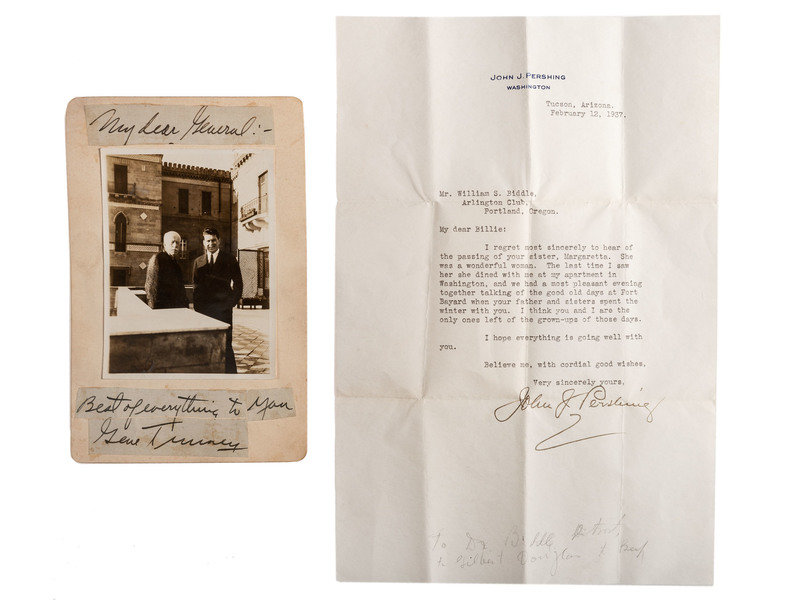 My dear General:-
Best of everything to You
Gene Tunney
JOHN J. PERSHING
WASHINGTON
Tucson, Arizona.
February 12, 1937.
Mr. William S. Biddle,
Arlington Club,
Portland, Oregon.
My dear Billie:
I regret most sincerely to hear of
the passing of your sister, Margaretta. She
was a wonderful woman. The last time I saw
her she dined with me at my apartment in
Washington, and we had a most pleasant evening
together talking of the good old days at Fort
Bayard when your father and sisters spent the
winter with you. I think you and I are the
only ones left of the grown-ups of those days.
I hope everything is going well with
you.
Believe me, with cordial good wishes,
Very sincerely yours,
John J. Pershing
To Dr Biddle
to Gilbert